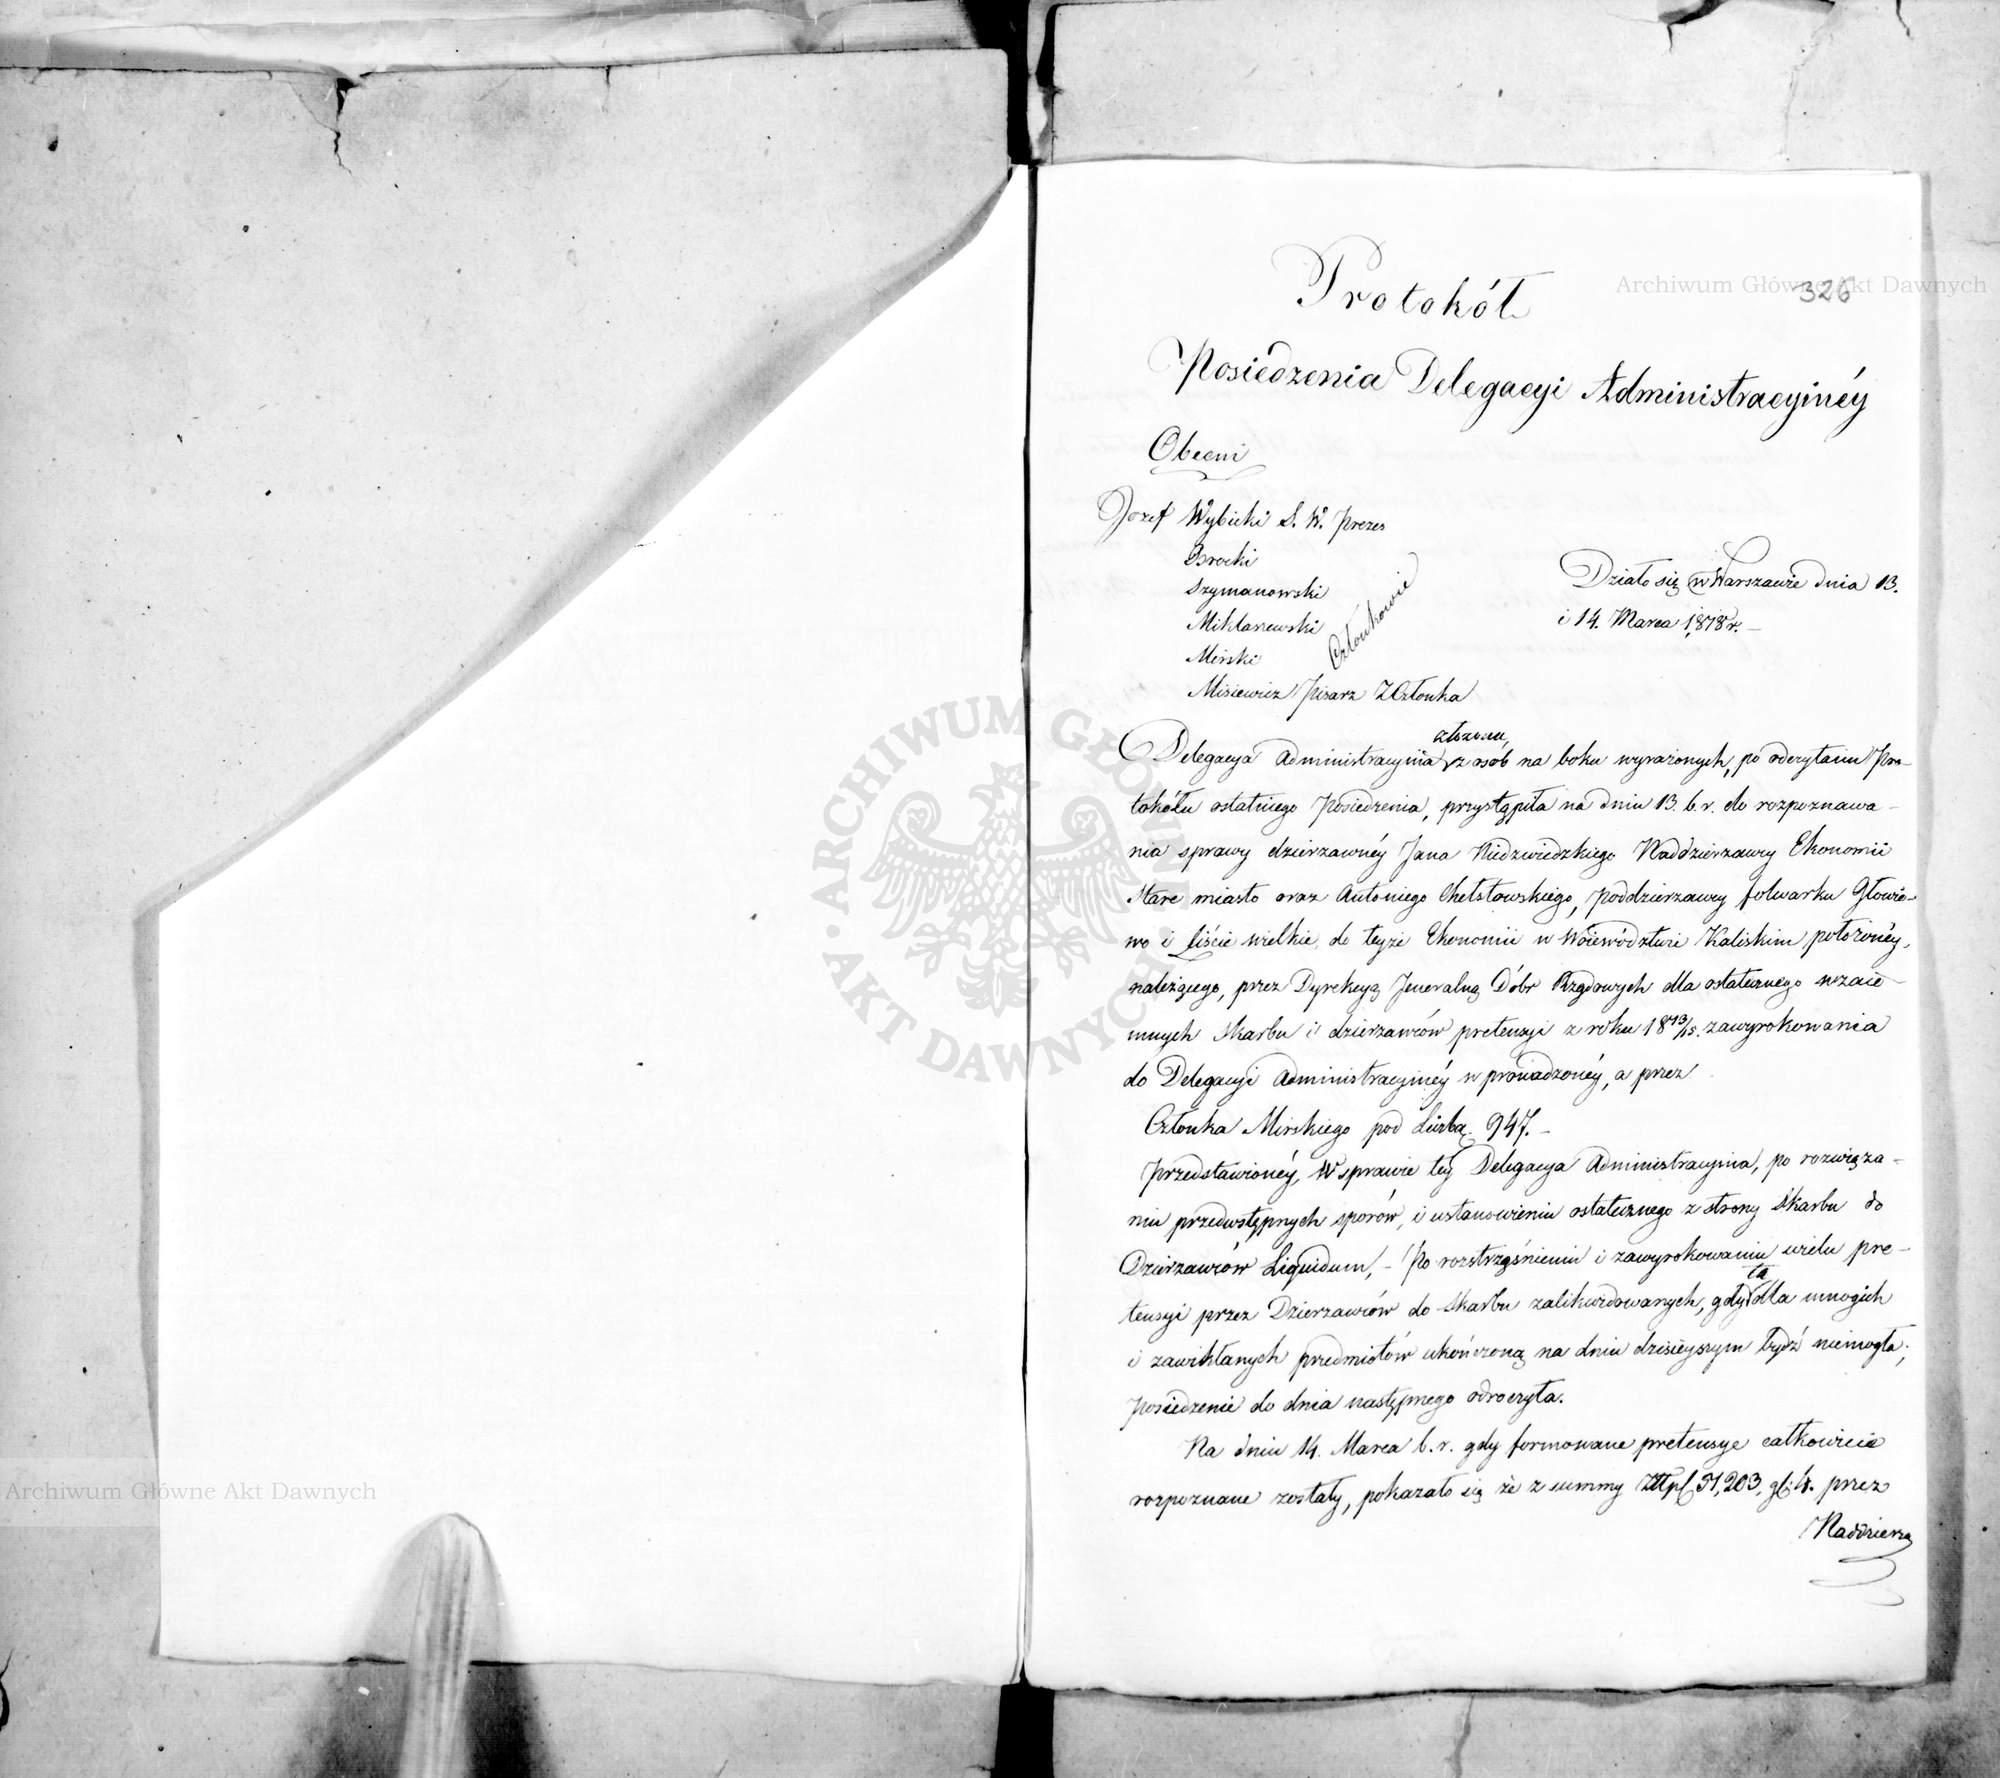 326
Protokół
Posiedzenia Delegacyi Administracyinéy
Obecni
Jozef Wybicki S. W. Prezes
Brocki
Szymanowski
Mikłaszewski
Mirski
Członkowie
Misiewicz Pisarz Z Członka
Działo się w Warszawie dnia 13.
i 14. Marca 1818 r. –
złożona,
Delegacya Administracyina z osób na boku wyrażonych, po odczytaniu Pro-
tokółu ostatniego Posiedzenia, przystąpiła na dniu 13. b. r. do rozpoznawa-
nia sprawy dzierzawnéy Jana Niedzwiedzkiego Naddzierzawcy Ekonomii
Stare miasto oraz Antoniego Chełstowskiego, poddzierzawcy folwarku Głowie-
wo i Liście wielkie do teyże Ekonomii w Woiewództwie Kaliskim położonéy,
należącego, przez Dyrekcyą Jeneralną Dóbr Rządowych dla ostatecznego wzaie-
mnych Skarbu i dzierzawców pretensyi z roku 18 13/15. zawyrokowania
do Delegacyi Administracyinéy wprowadzonéy, a przez
Członka Mirskiego pod Liczbą. 947. –
przedstawionéy, W sprawie téy Delegacya Administracyina, po rozwiąza-
niu przedwstępnych sporów, i ustanowieniu ostatecznego z strony Skarbu do
Dzierzawców Liquidum, – Po rozstrząśnieniu i zawyrokowaniu wielu pre-
ta
tensyi przez Dzierzawców do Skarbu zalikwidowanych, gdy dla mnogich
i zawikłanych przedmiotów ukończoną na dniu dzisieyszym bydź niemogła;
posiedzenie do dnia następnego odroczyła.
Na dniu 14. Marca b. r. gdy formowane pretensye całkowicie
rozpoznane zostały, pokazało się że z summy Złłpl. 51,203, gl. 4. przez
Naddzierza